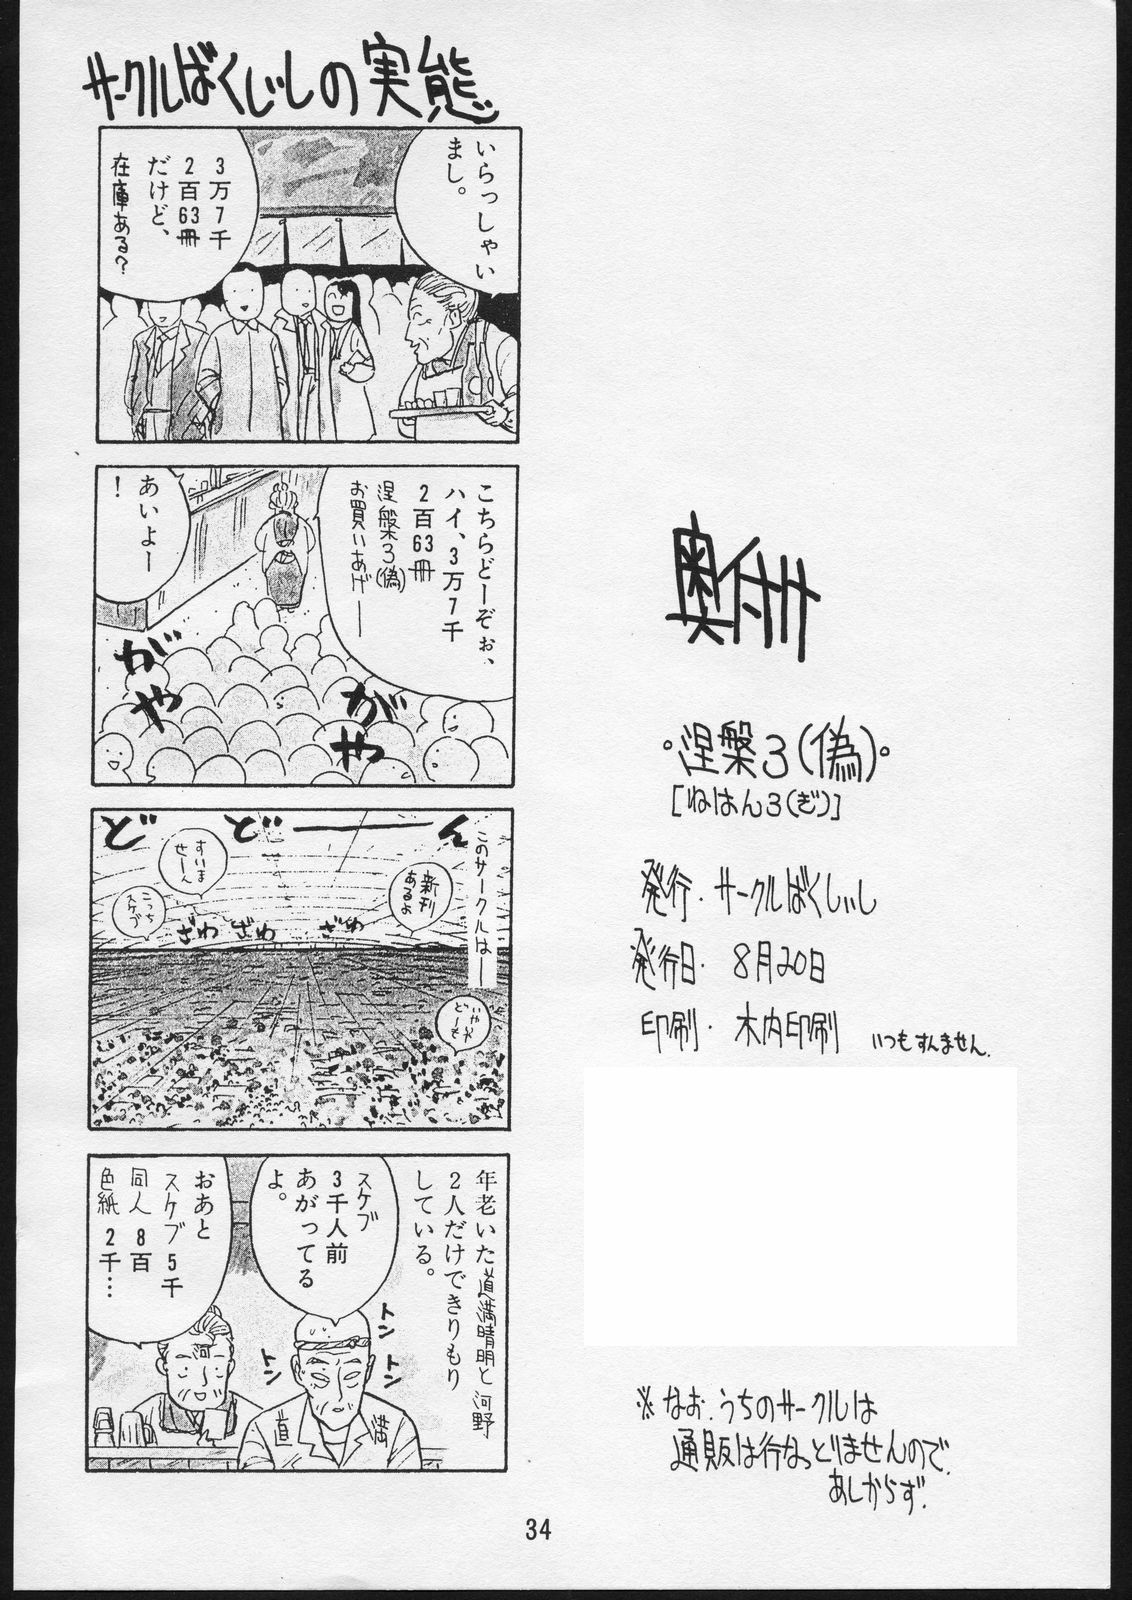 サークルばくしぃしの実態
いらっしゃい
まし。
3万7千
2百63冊
だけど、
在庫ある？
こちらどーぞぉ、
ハイ、3万7千
2百63冊
涅槃3(偽)
お買いあげ――
あいよー
！
がや
がや
ど ど―――ん
このサークルは――
新刊
あるよ
すいま
せーん
こっち
スケブ
ざわ
ざわ
ざわ
いやが
どーも
年老いた道満晴明と河野
2人だけできりもり
している。
スケブ
3千人前
あがってる
よ。
おあと
スケブ5千
同人8百
色紙2千…
トン
トン
トン
トン
河
道満
奥付
・涅槃3(偽)・
[ねはん3(ぎ)]
発行・サークルばくしぃし
発行日・8月20日
印刷・木内印刷 いつもすんません。
※なお、うちのサークルは
通販は行なっとりませんので、
あしからず。
34